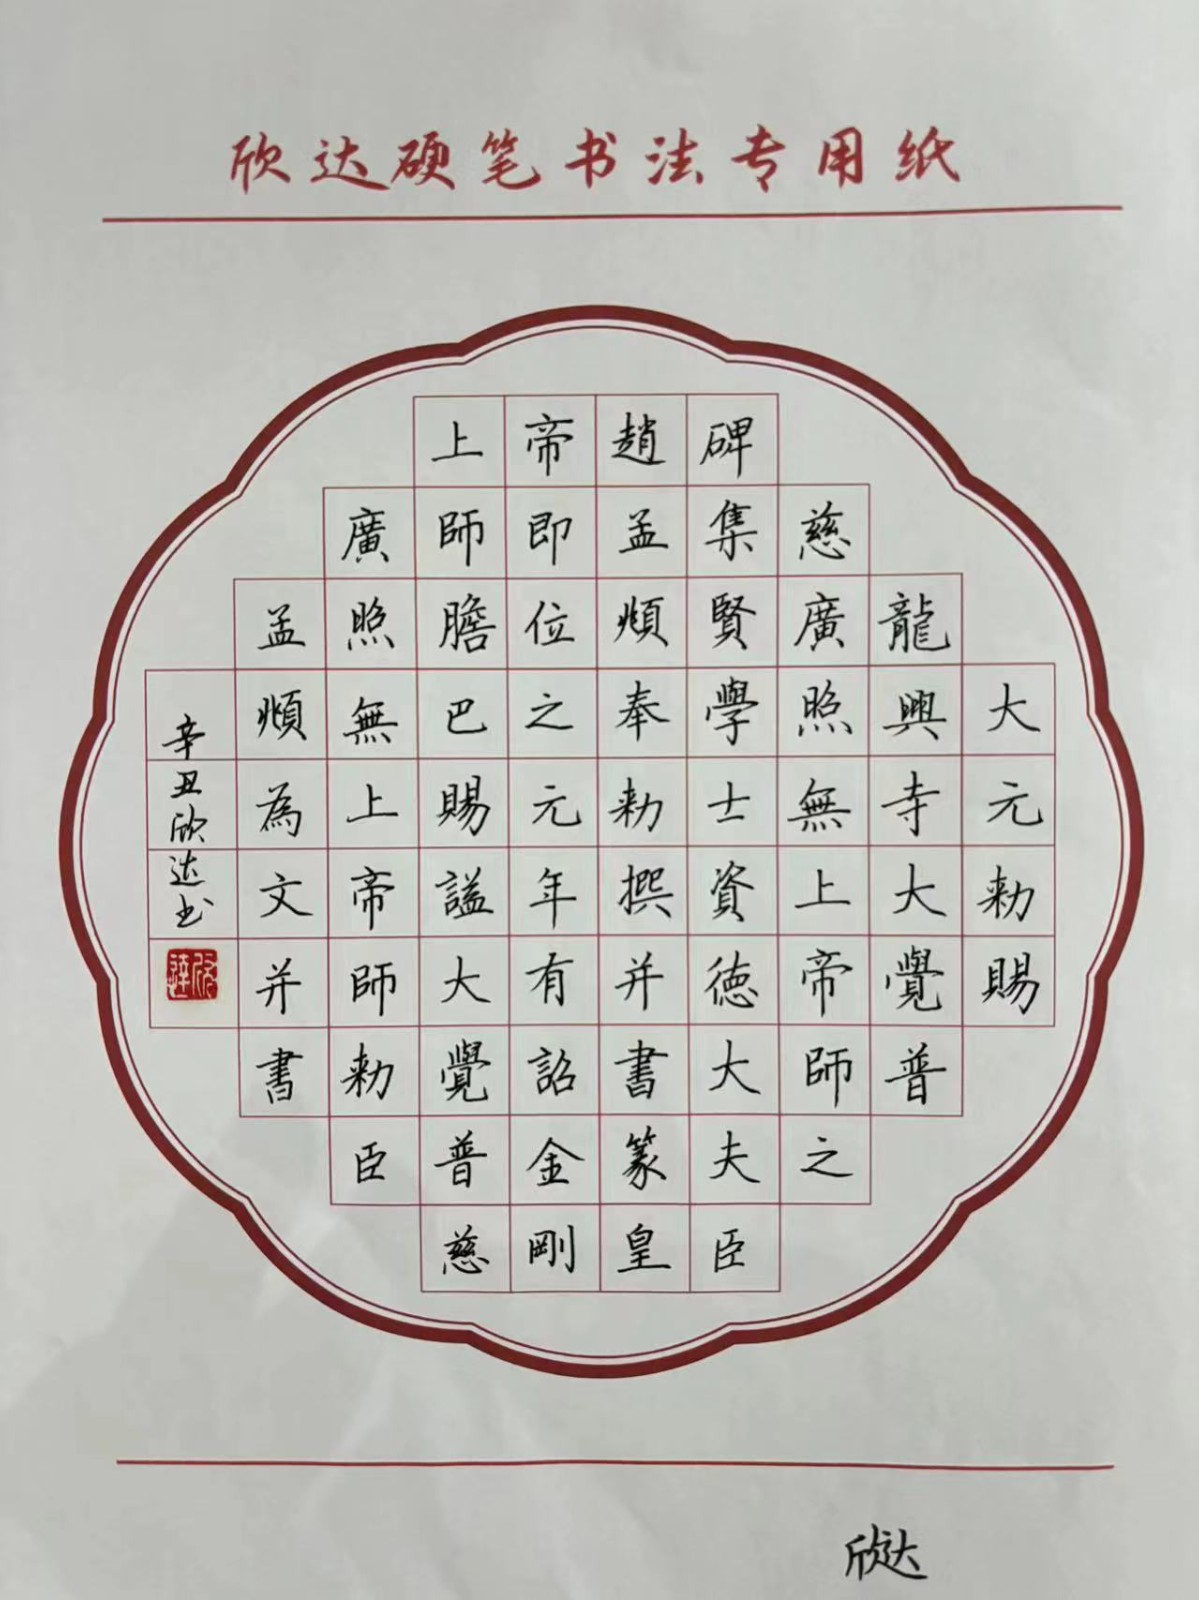 欣达硬笔书法专用纸
大元勅賜
龍興寺大覺普
慈廣照無上帝師之
碑集賢學士資徳大夫臣
趙孟頫奉勅撰并書篆皇
帝即位之元年有詔金剛
上師膽巴賜謚大覺普慈
廣照無上帝師勅臣
孟頫為文并書
辛丑欣达书
欣達
欣达